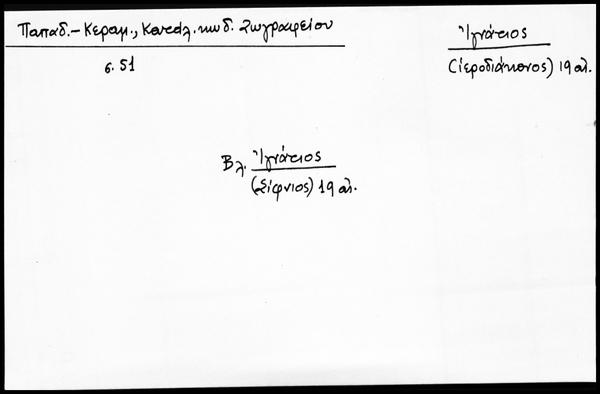 Παπαδ.-Κεραμ., Καταλ. κωδ. Ζωγραφείου
σ. 51
Ἰγνάτιος
(ἱεροδιάκονος) 19 αἰ.
Βλ. Ἰγνάτιος
(Σίφνιος) 19 αἰ.